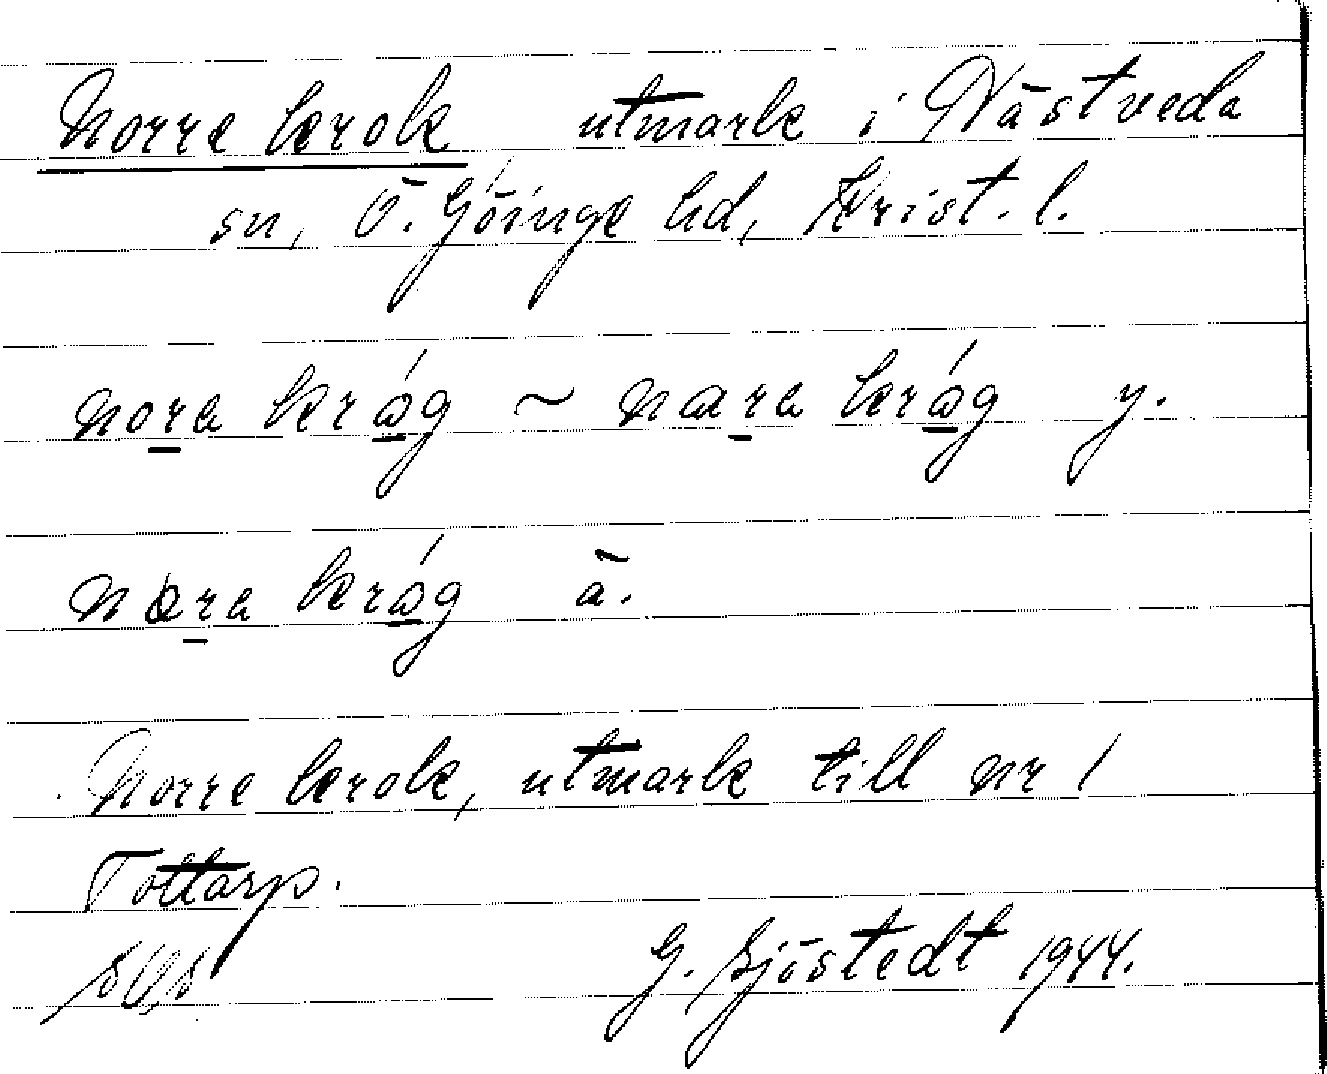 Norre krok utmark i Nästveda
sn, Ö. Göinge hd, Krist. l.
nora kråg ~ nara kråg y.
nøra kråg ä.
Norre krok, utmark till nr 1
Tottarp.
G. Sjöstedt 1944.